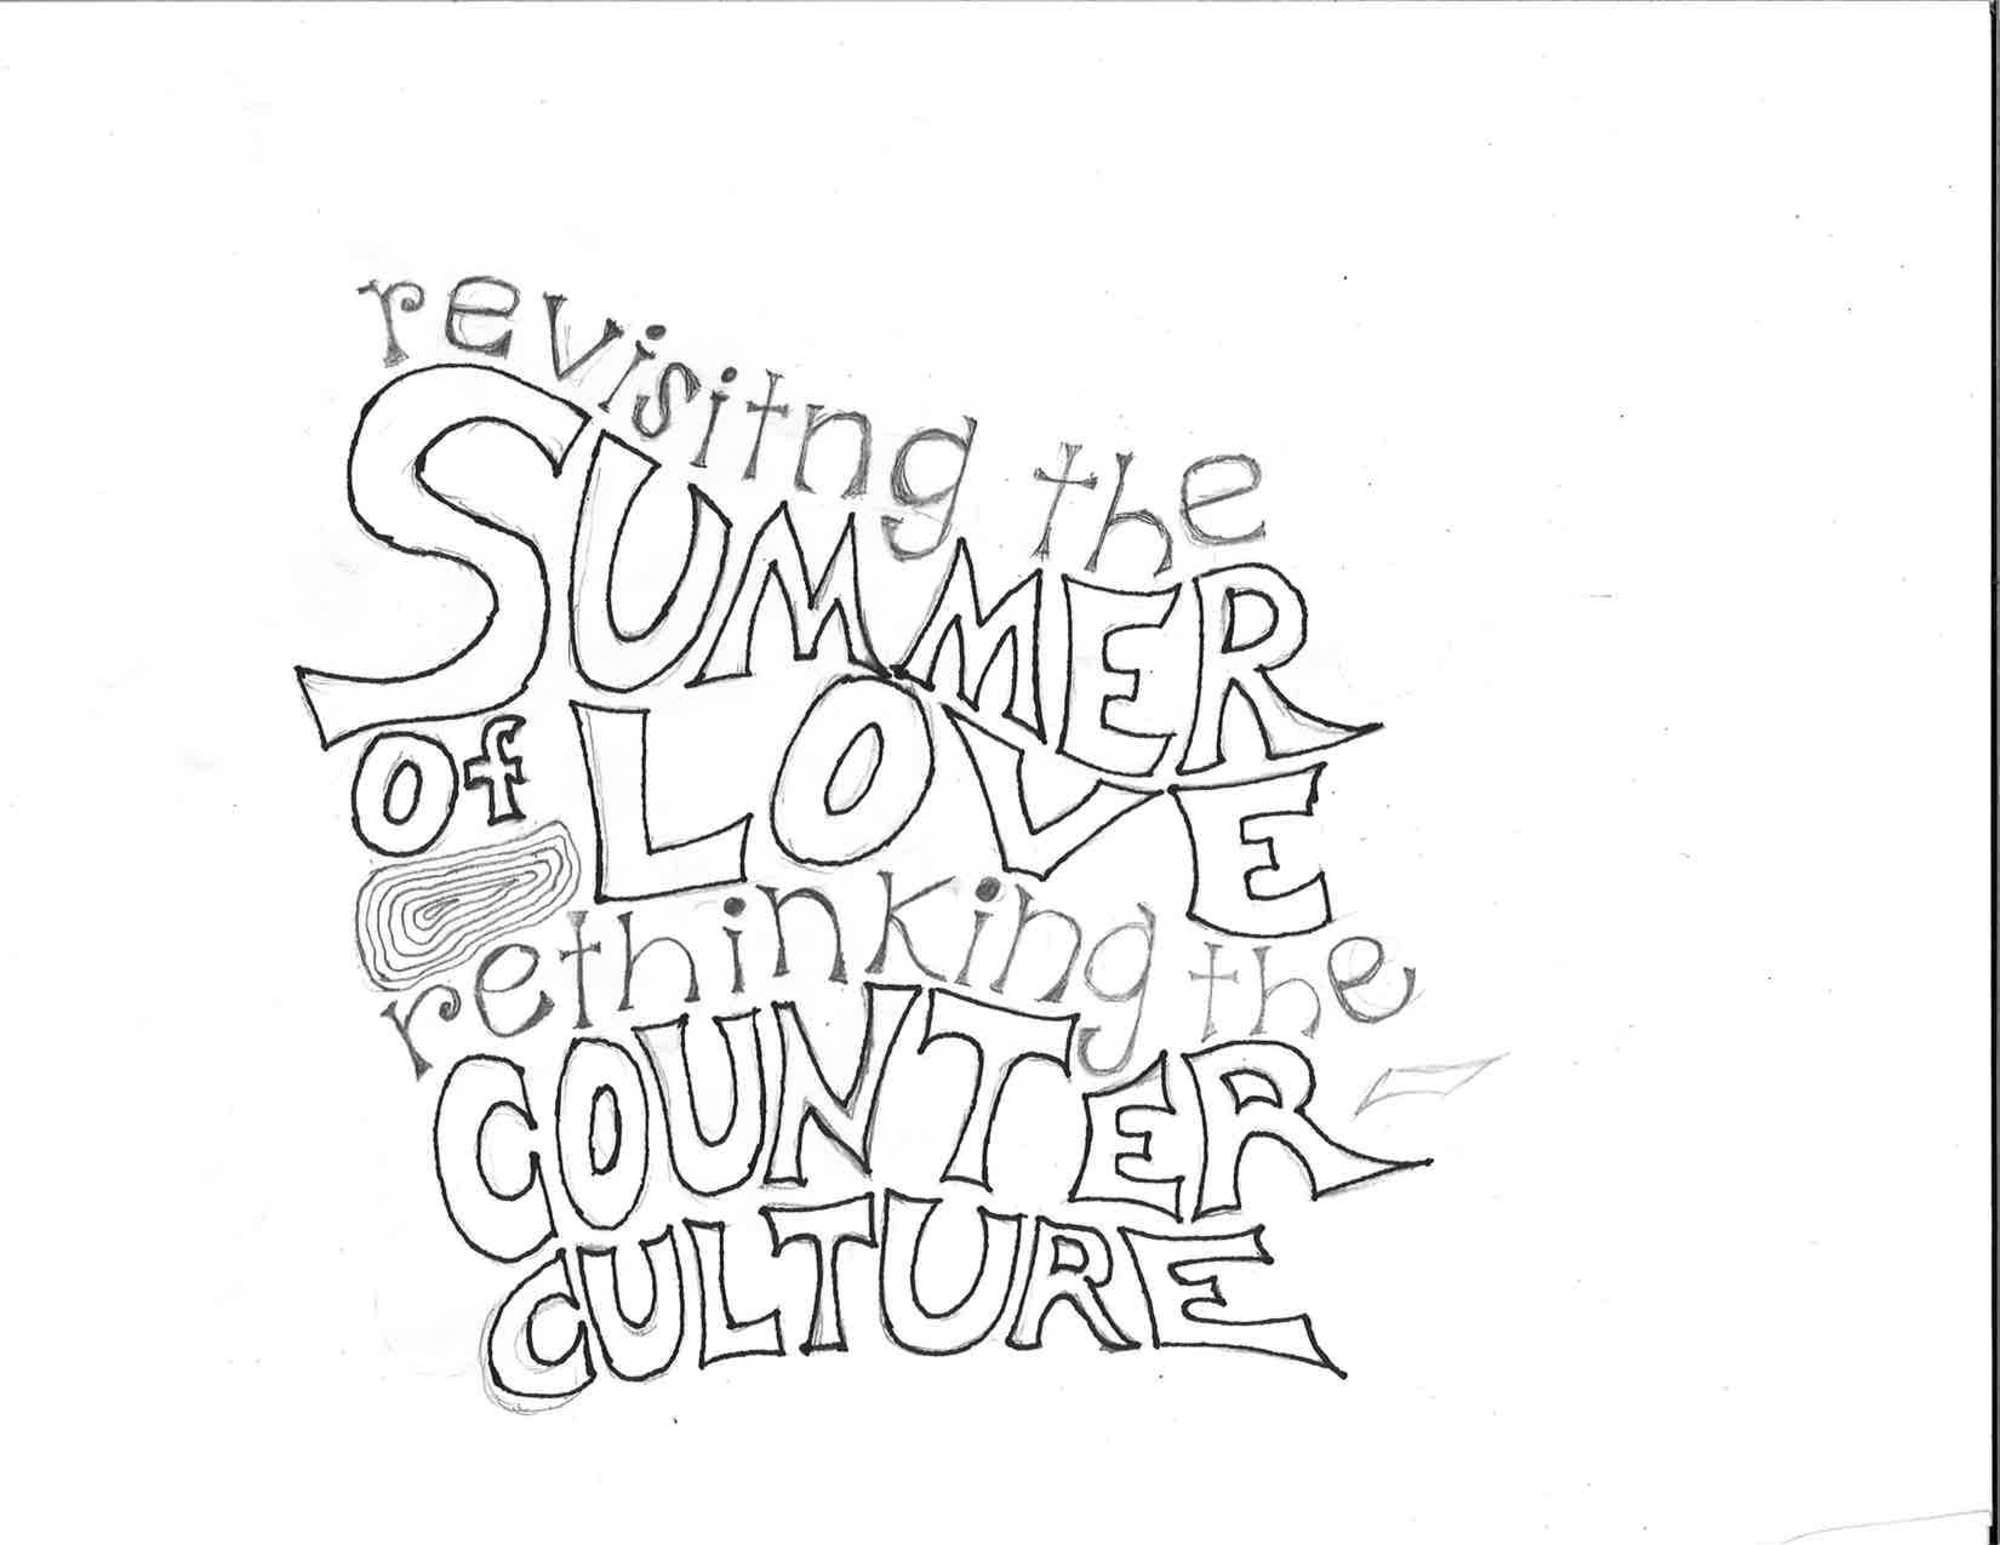 revisitng the
SUMMER
of LOVE
rethinking the
COUNTER
CULTURE